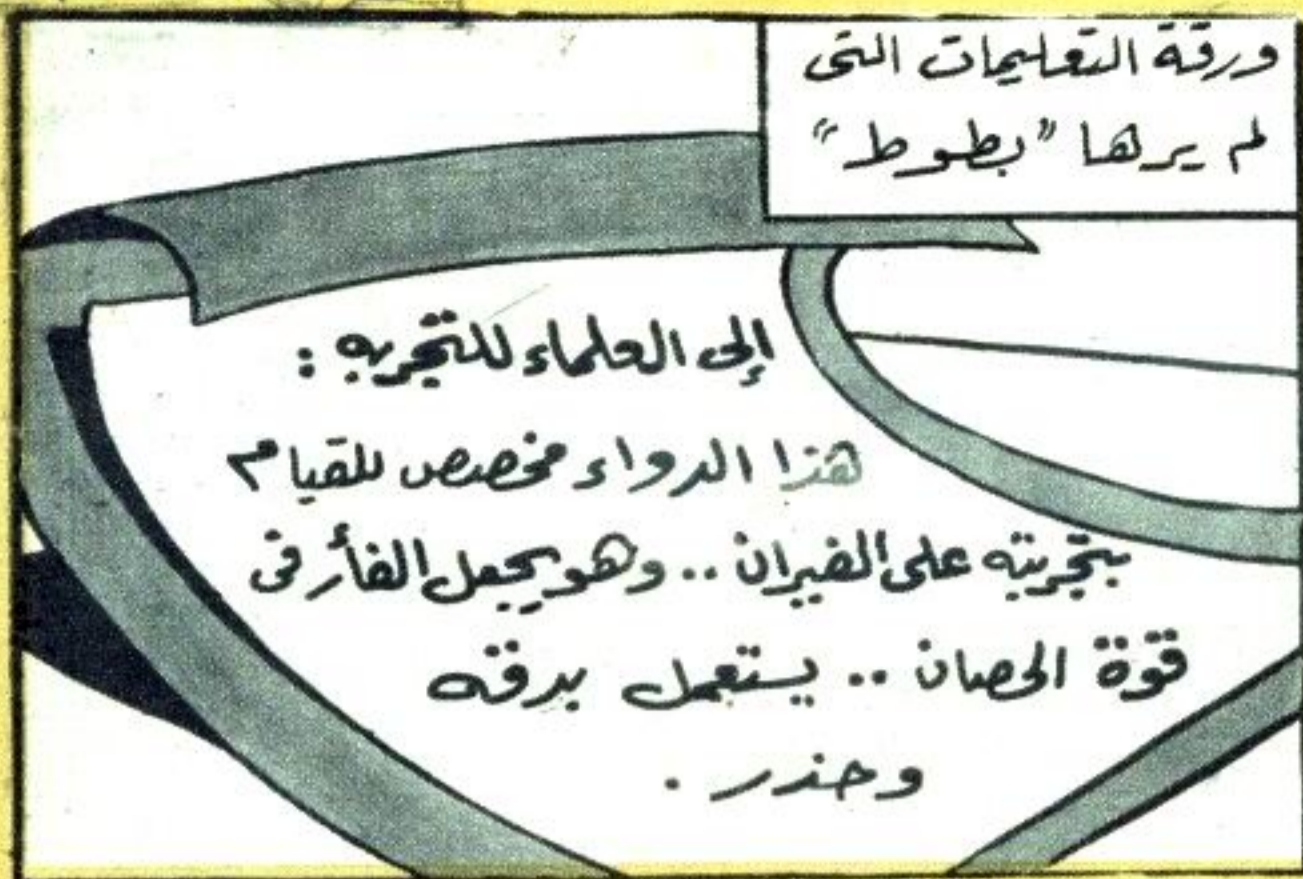 ورقة التعليمات التى
لم يرها "بطوط"
إلى العلماء للتجربه :
هذا الدواء مخصص للقيام
بتجربته على الفيران .. وهو يجعل الفأر فى
قوة الحصان .. يستعمل بدقه
وحذر .